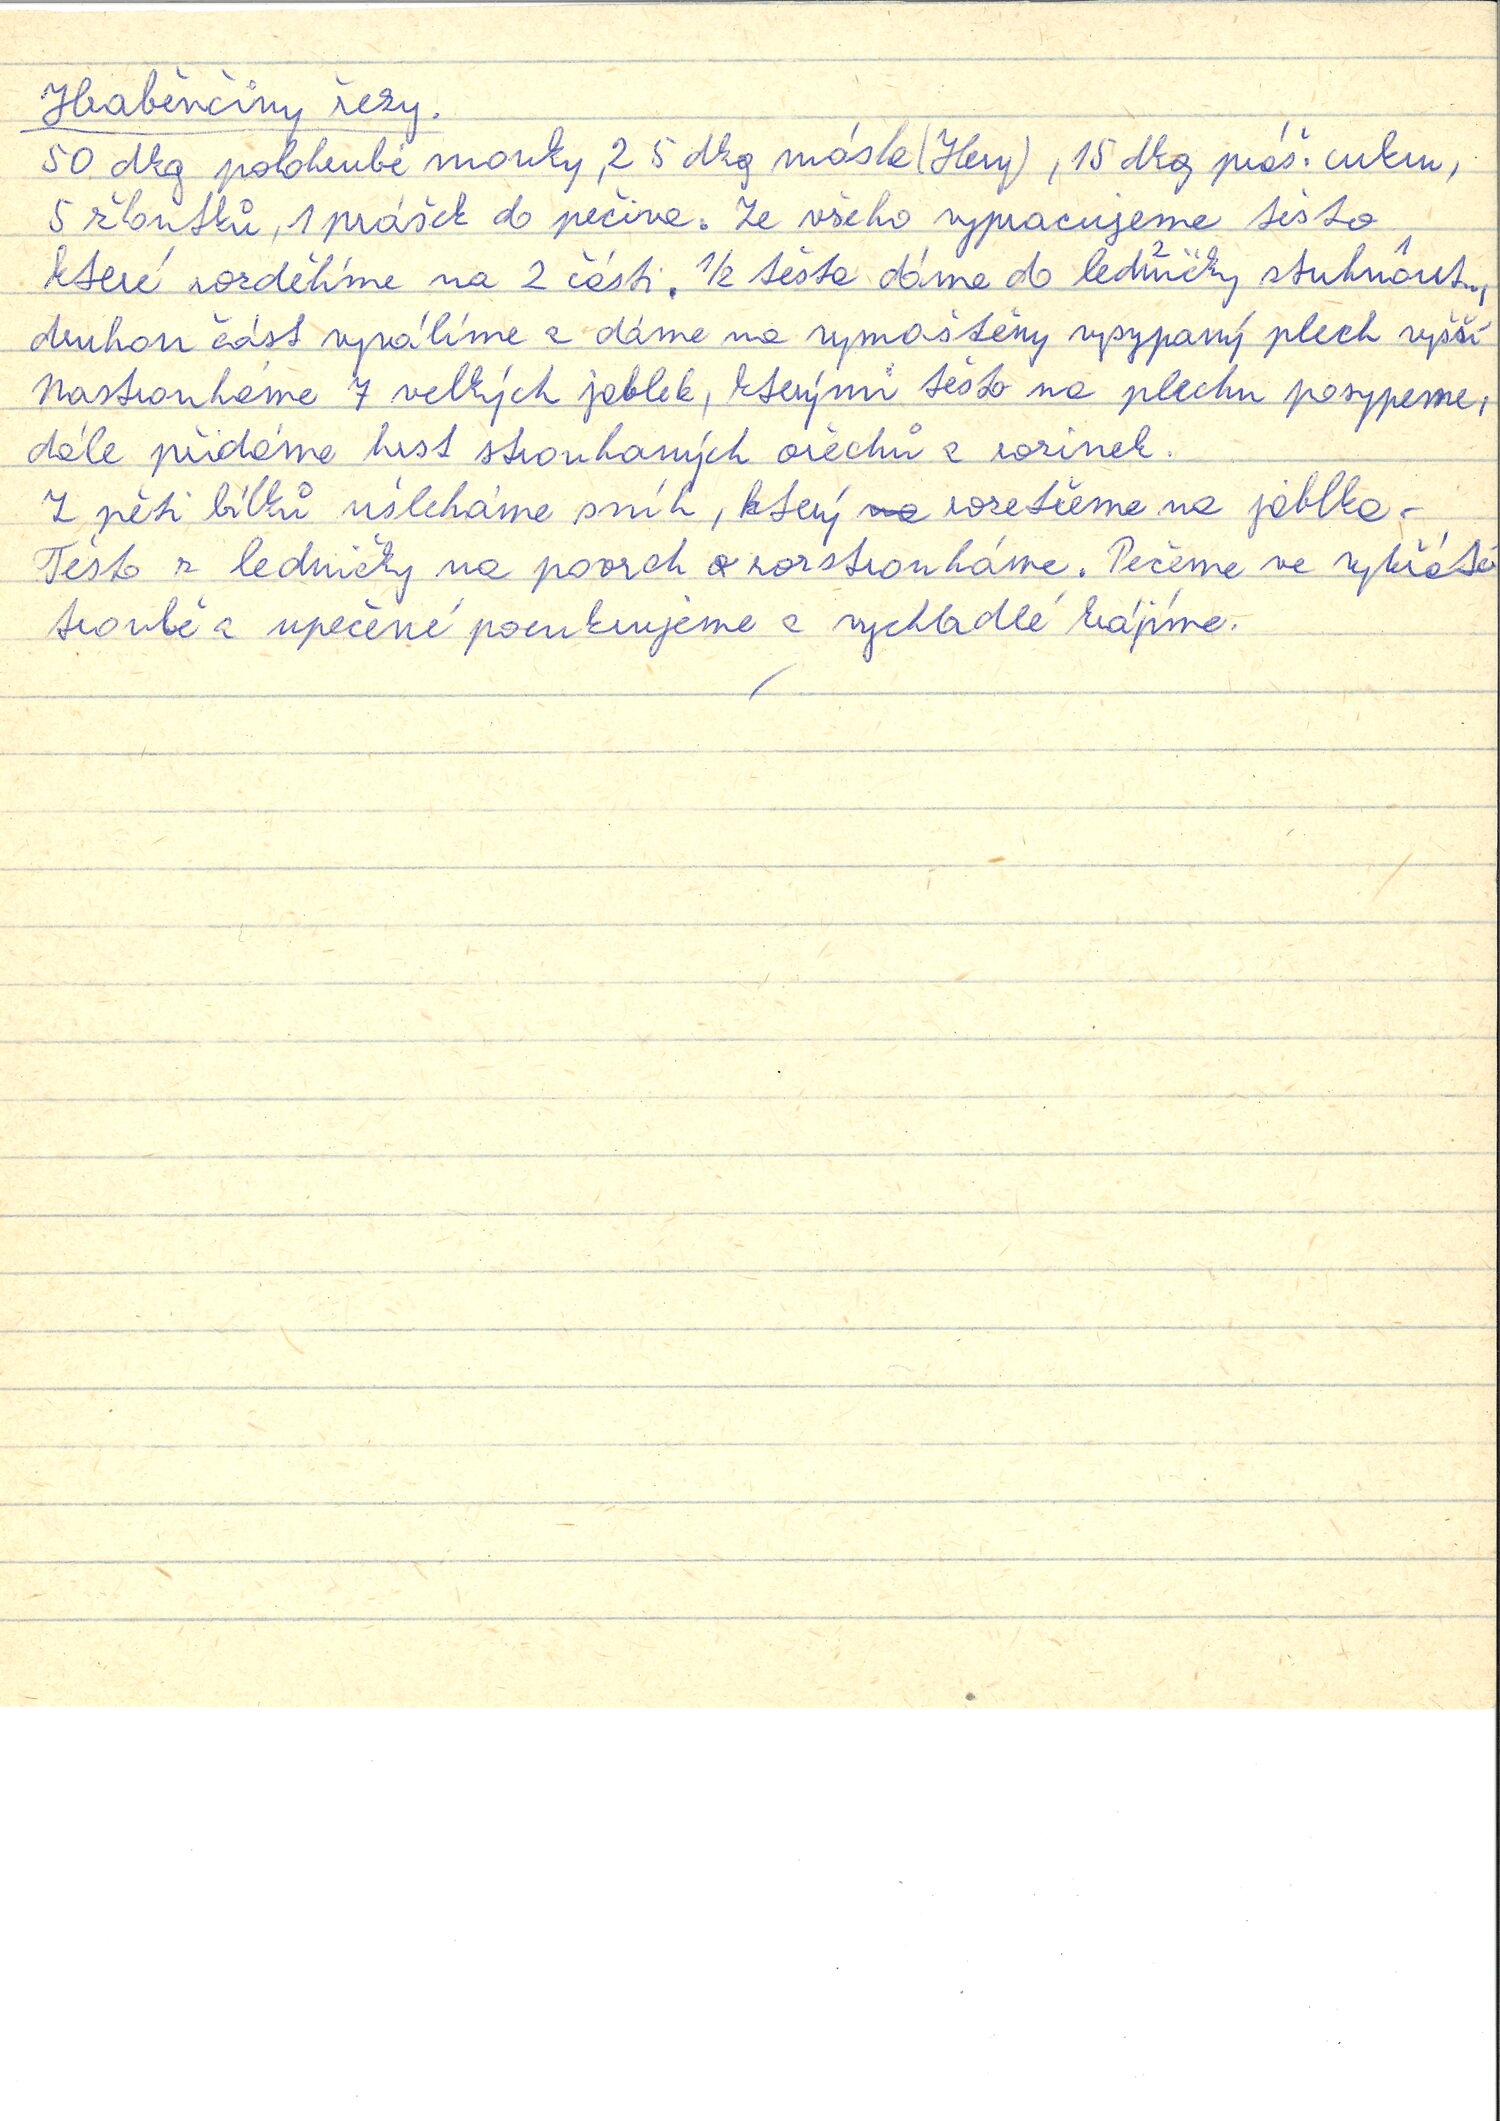 Hraběnčiny řezy.
50 dkg polohrubé mouky, 25 dkg másla (Hery), 15 dkg práš. cukru,
5 žloutků, 1 prášek do pečiva. Ze všeho vypracujeme těsto
které rozdělíme na 2 části. 1/2 těsta dáme do ledničky ztuhnout,
druhou část vyválíme a dáme na vymaštěný vysypaný plech vyšší
Nastrouháme 7 velkých jablek, kterými těsto na plechu posypeme,
dále přidáme hrst strouhaných ořechů a rozinek.
Z pěti bílků ušleháme sníh, který na rozetřeme na jablka -
Těsto z ledničky na povrch rozstrouháme. Pečeme ve vyhřáté
troubě a upečené pocukrujeme a vychladlé krájíme.